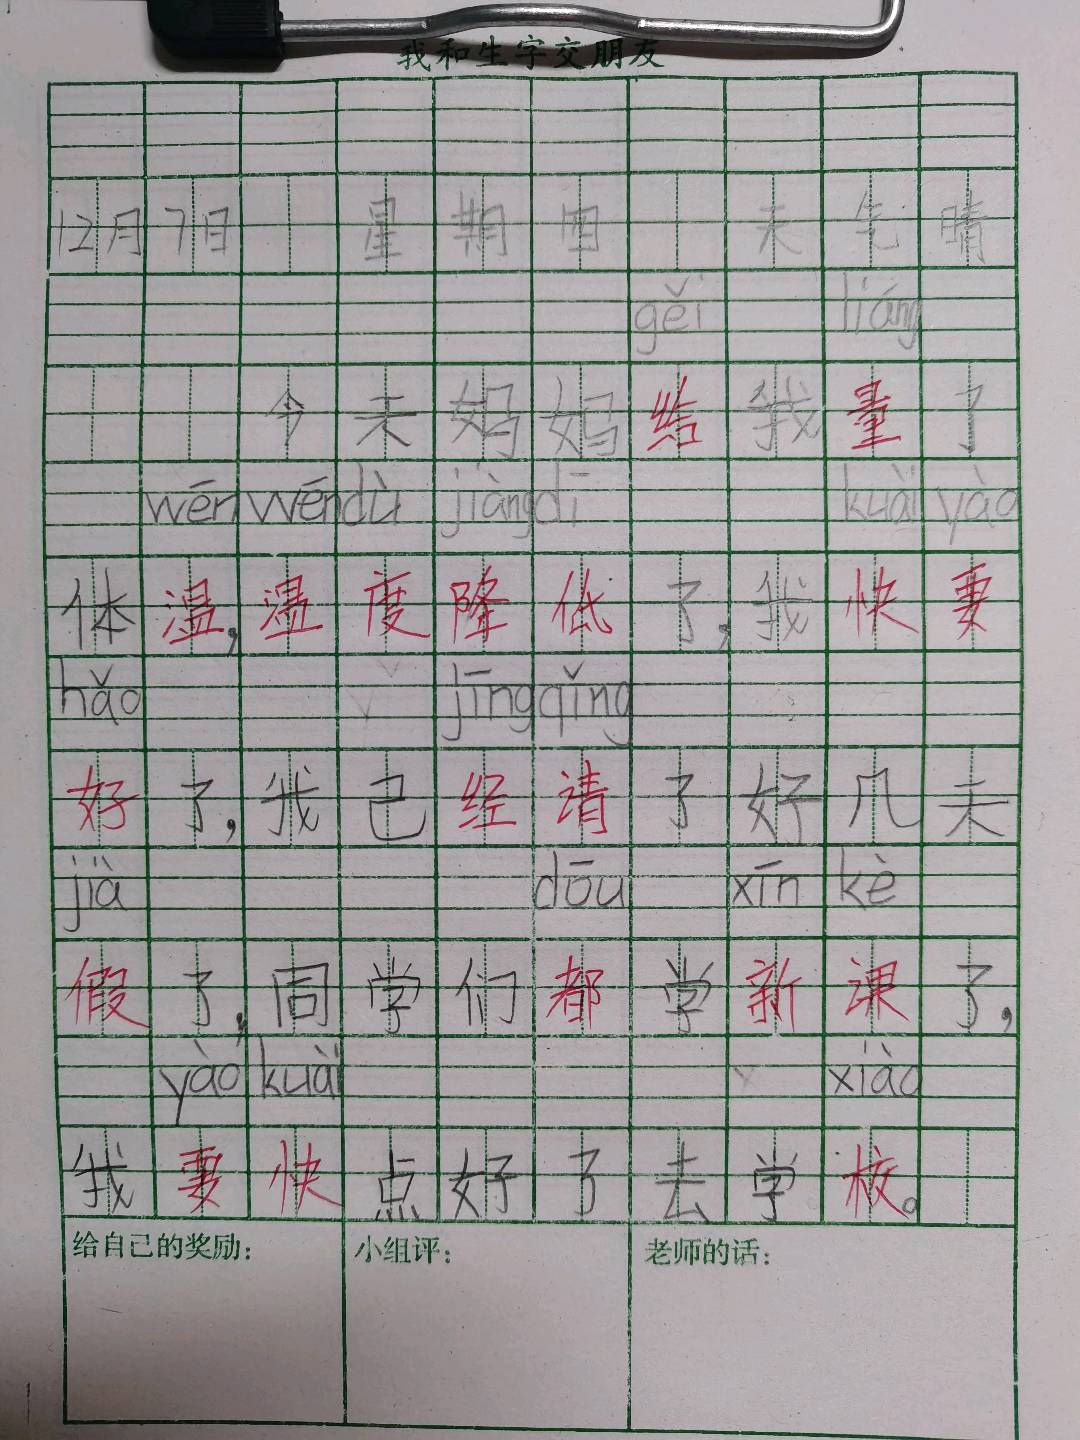 我和生字交朋友
12月7日 星期四 天气晴
gěi liáng
今天妈妈给我量了
wēn wēn dù jiàng dī kuài yào
体温,温度降低了,我快要
hǎo jīng qǐng
好了,我已经请了好几天
jià dōu xīn kè
假了,同学们都学新课了,
yào kuài xiào
我要快点好了去学校。
给自己的奖励: 小组评: 老师的话: